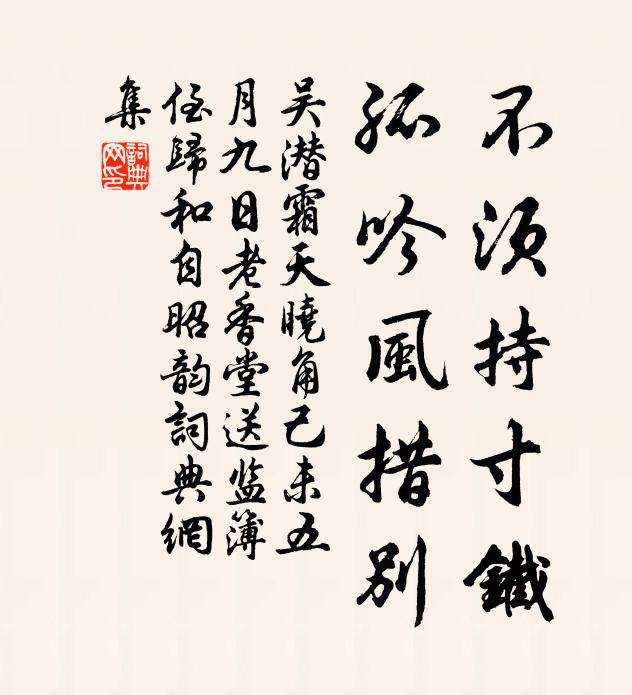 不须持寸鐵
孤吟風措别
吴潜霜天曉角己未五
月九日老香堂送监簿
侄歸和自昭韵詞典網
集
詞典
网印